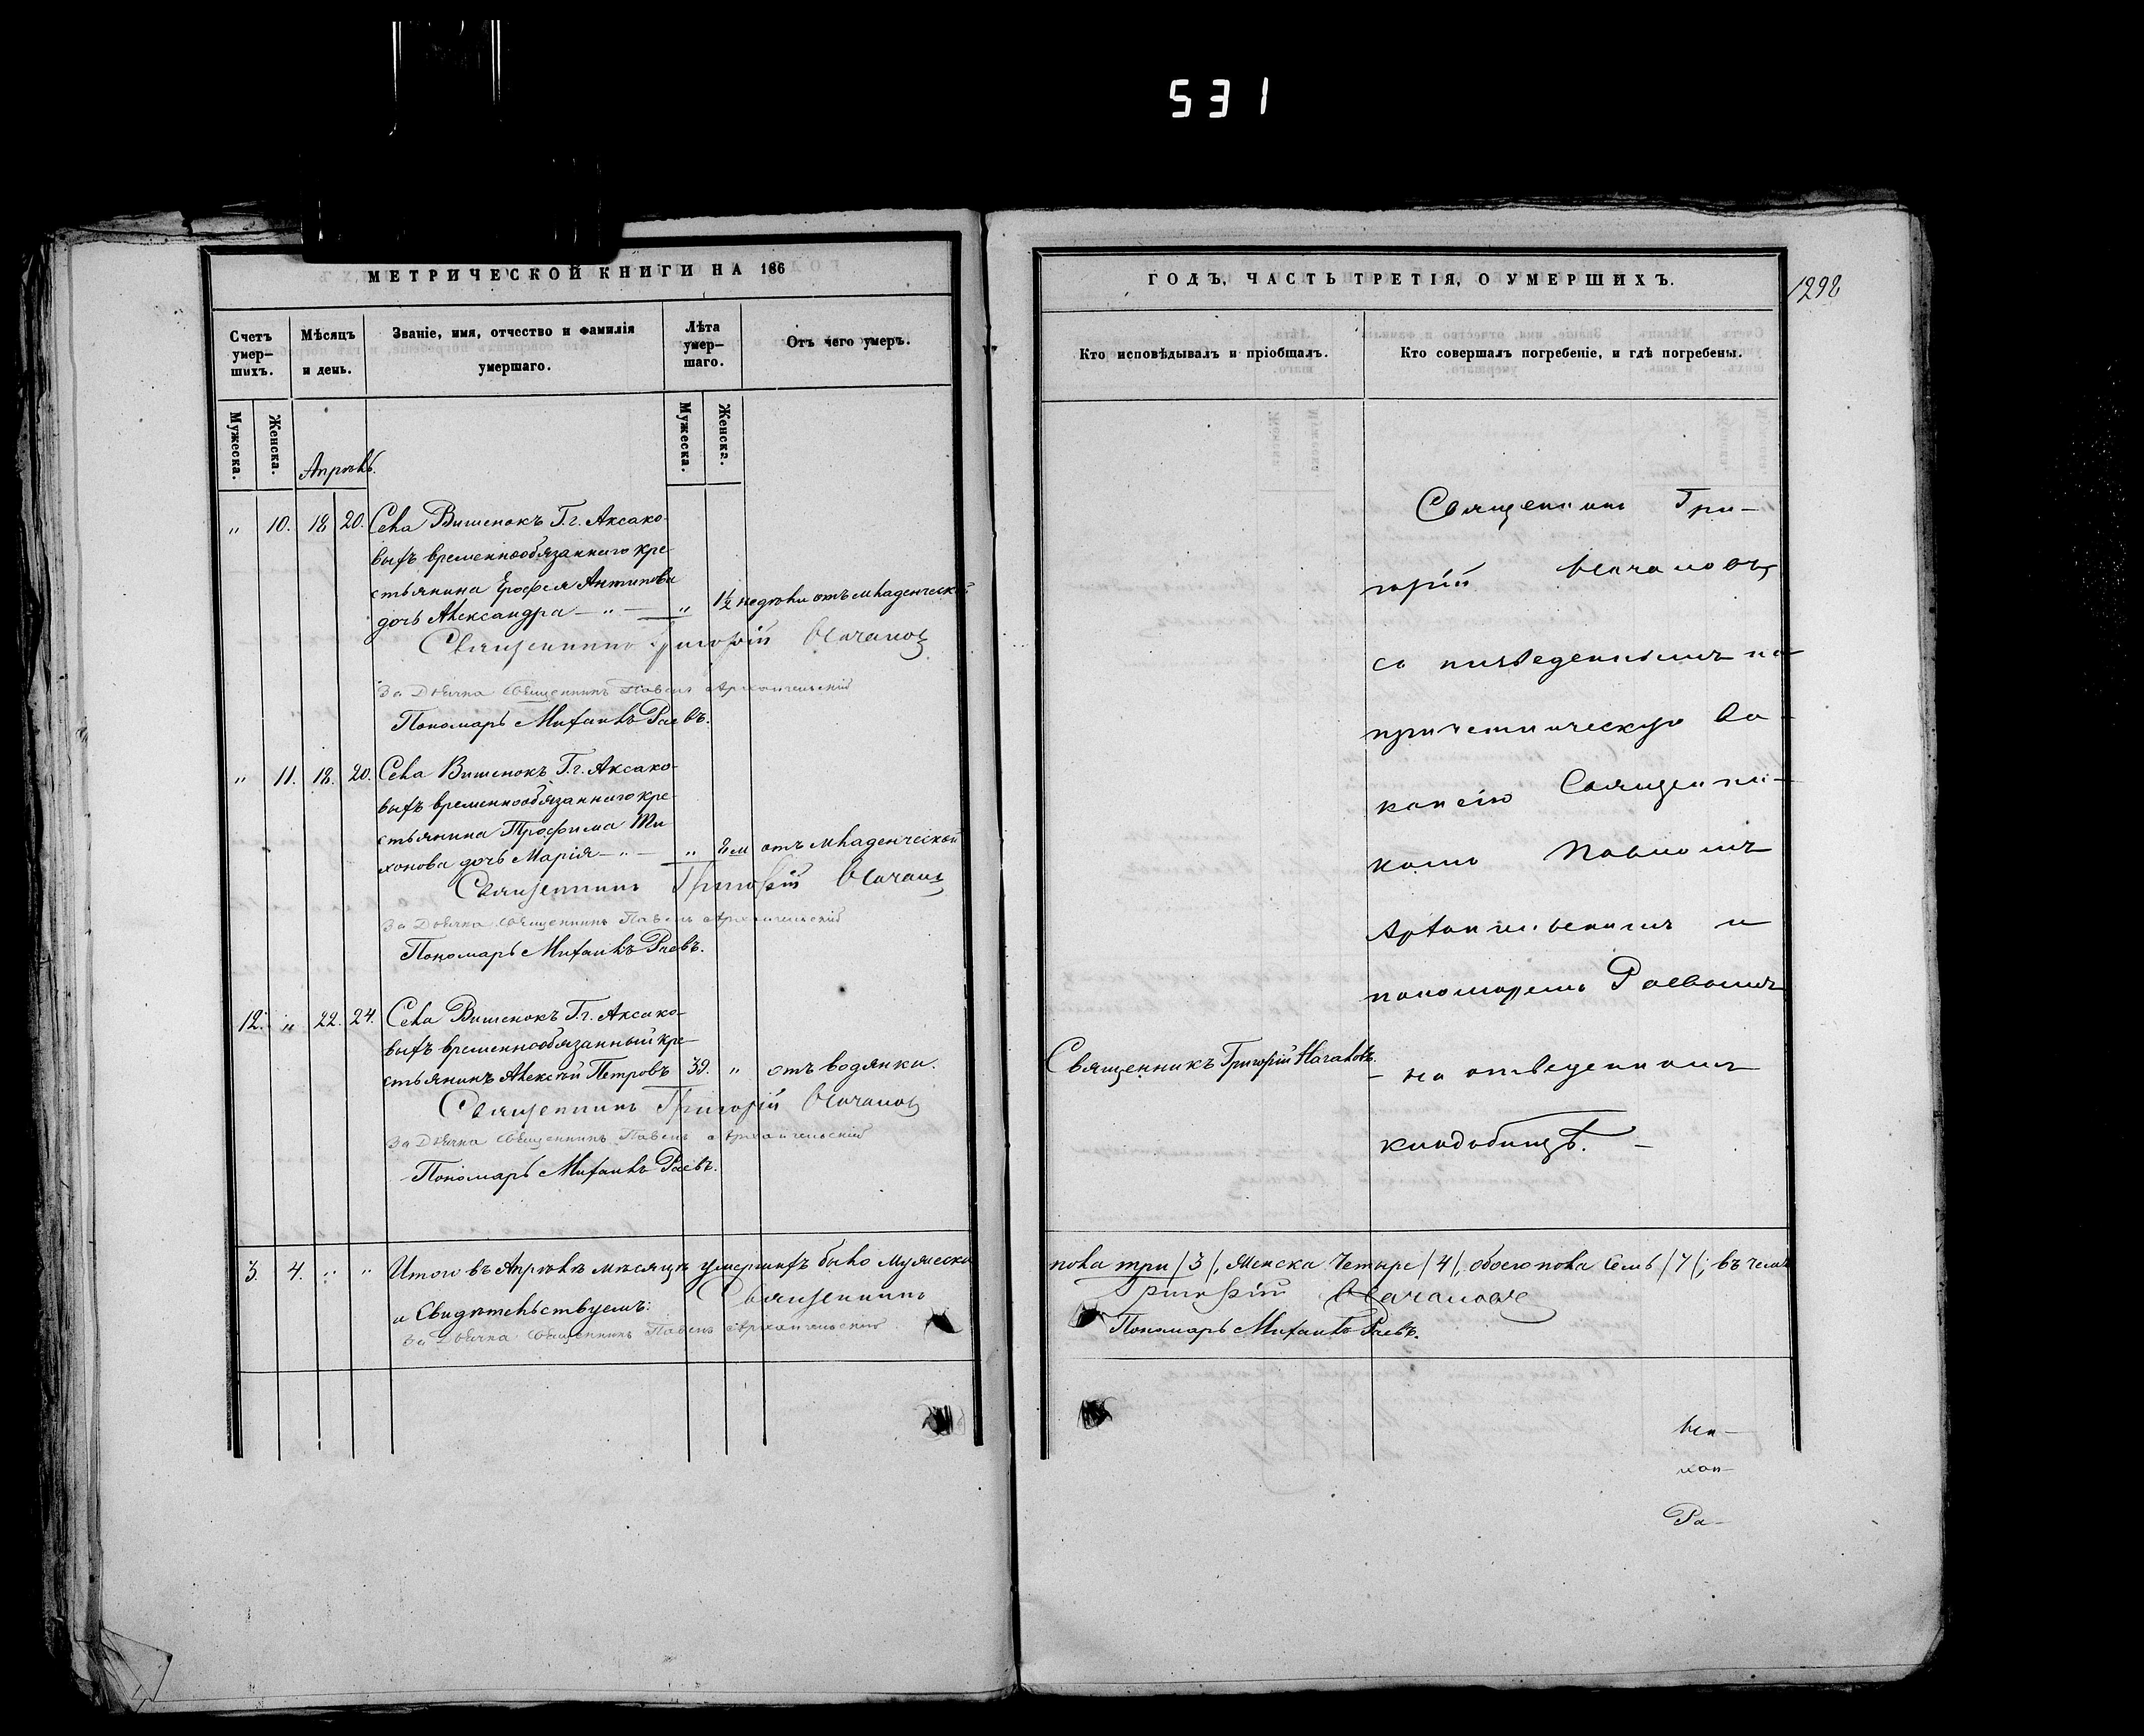 531
МЕТРИЧЕСКОЙ КНИГИ НА 186
Счетъ умер-шихъ.
Мѣсяцъ и день.
Званіе, имя, отчество и фамилія умершаго.
Лѣта умер-шаго.
Отъ чего умеръ.
Мужеска.
Женска.
Мужеска.
Женска.
Апрѣль.
„ 10. 18 20. Села Вишенокъ Г.г. Аксако-
выхъ временнообязаннаго кре-
стьянина Ерофея Антипова
дочь Александра — „ — „ 1½ недѣли отъ младенческой
Священникъ Григорій
За Дьячка Священникъ Павелъ Архангельскій
Пономарь Михаилъ Раевъ.
„ 11. 18. 20. Села Вишенокъ Г.г. Аксако-
выхъ временнообязаннаго кре-
стьянина Трофима Ти-
хонова дочь Марія — „ — „ 8 м отъ младенческой
Священникъ Григорій
За Дьячка Священникъ Павелъ Архангельскій
Пономарь Михаилъ Раевъ.
12. „ 22. 24. Села Вишенокъ Г.г. Аксако-
выхъ временнообязанный кре-
стьянинъ Алексѣй Петровъ 39. „ отъ водянки.
Священникъ Григорій
За Дьячка Священникъ Павелъ Архангельскій
Пономарь Михаилъ Раевъ.
3. 4. „ „ Итого въ Апрѣлѣ мѣсяцѣ умершихъ было мужеска
и Свидѣтельствуемъ: Священникъ
За Дьячка Священникъ Павелъ Архангельскій
ГОДЪ, ЧАСТЬ ТРЕТІЯ, О УМЕРШИХЪ.
1298
Кто исповѣдывалъ и пріобщалъ.
Кто совершалъ погребеніе, и гдѣ погребены.
Священникъ Гри-
горій
съ низведеннымъ на
причетническую ва-
кансію Священни-
комъ Павломъ
Архангельскимъ и
пономаремъ Раевымъ
Священникъ Григорій
на отведенномъ
кладбищѣ. —
пола три /3/, женска четыре /4/, обоего пола семь /7/; въ чемъ
Григорій
Пономарь Михаилъ Раевъ.
Ра-